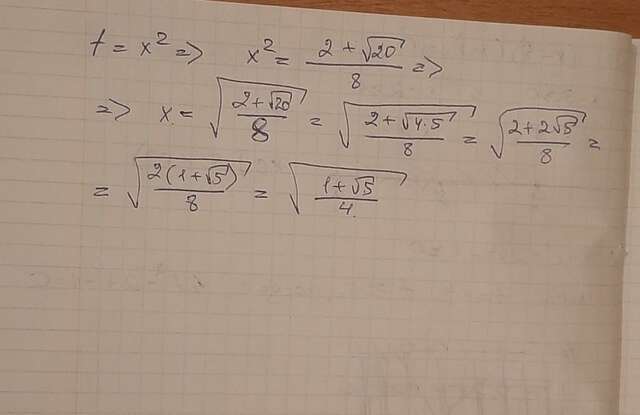 t = x² => x² = (2 + √20)/8 =>
=> x = √((2+√20)/8) = √((2+√(4·5))/8) = √((2+2√5)/8) =
= √((2(1+√5))/8) = √((1+√5)/4)